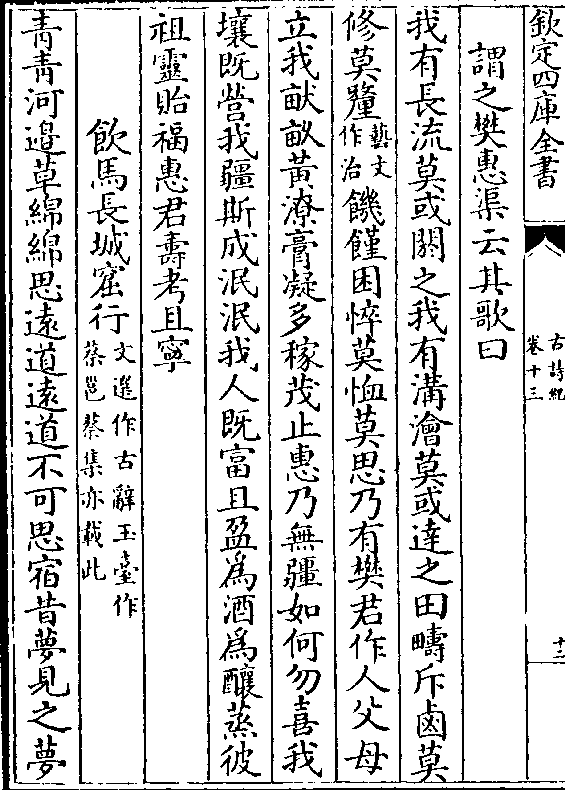 欽定四庫全書
古詩紀
卷十三
十二
謂之樊惠渠云其歌曰
我有長流莫或閼之我有溝澮莫或達之田疇斥鹵莫
修莫釐藝文作治饑饉困悴莫恤莫思乃有樊君作人父母
立我畎畝黃潦膏凝多稼茂止惠乃無疆如何勿喜我
壤既營我疆斯成泯泯我人既富且盈為酒為釀蒸彼
祖靈貽福惠君壽考且寧
飲馬長城窟行文選作古辭玉臺作蔡邕蔡集亦載此
青青河邉草綿綿思遠道遠道不可思宿昔夢見之夢